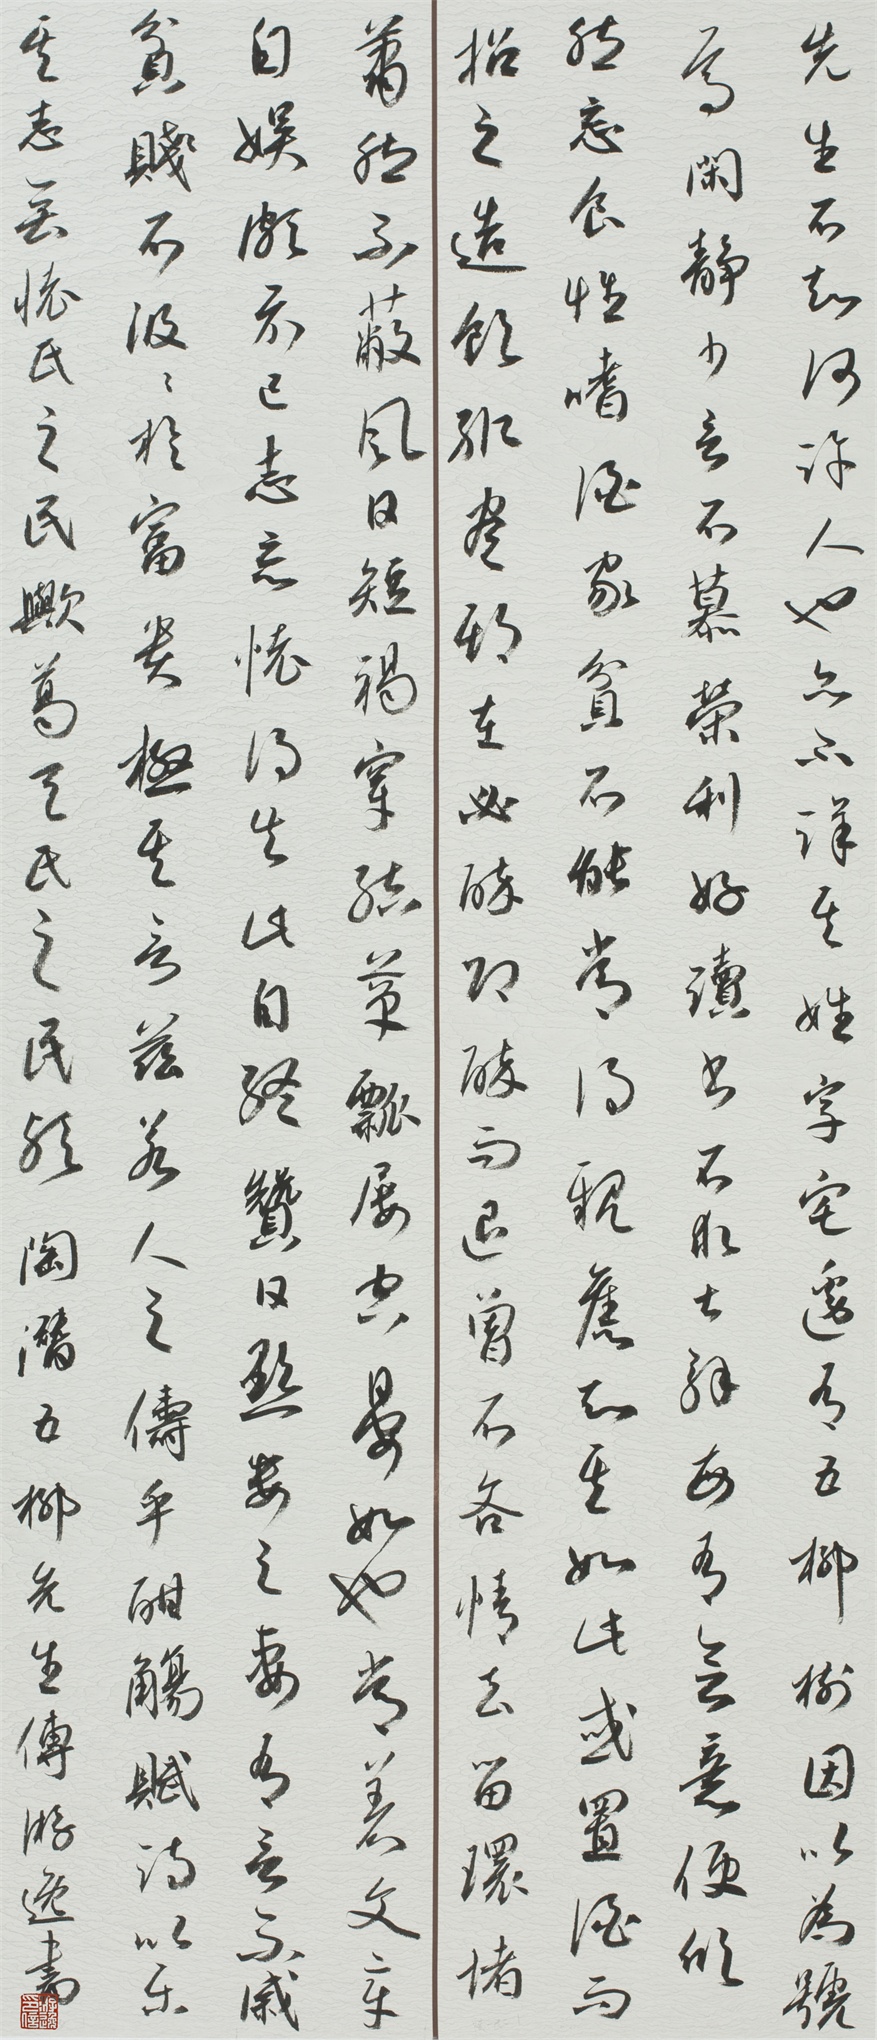 先生不知何許人也亦不詳其姓字宅邊有五柳樹因以為號
焉閑靜少言不慕榮利好讀書不求甚解每有會意便欣
然忘食性嗜酒家貧不能常得親舊知其如此或置酒而
招之造飲輒盡期在必醉既醉而退曾不吝情去留環堵
蕭然不蔽風日短褐穿結簞瓢屢空晏如也常著文章
自娛頗示己志忘懷得失此自終贊曰黔婁之妻有言不戚
貧賤不汲〻於富貴極其言茲若人之儔乎酣觴賦詩以樂
其志無懷氏之民歟葛天氏之民歟 陶潛五柳先生傳游逸書